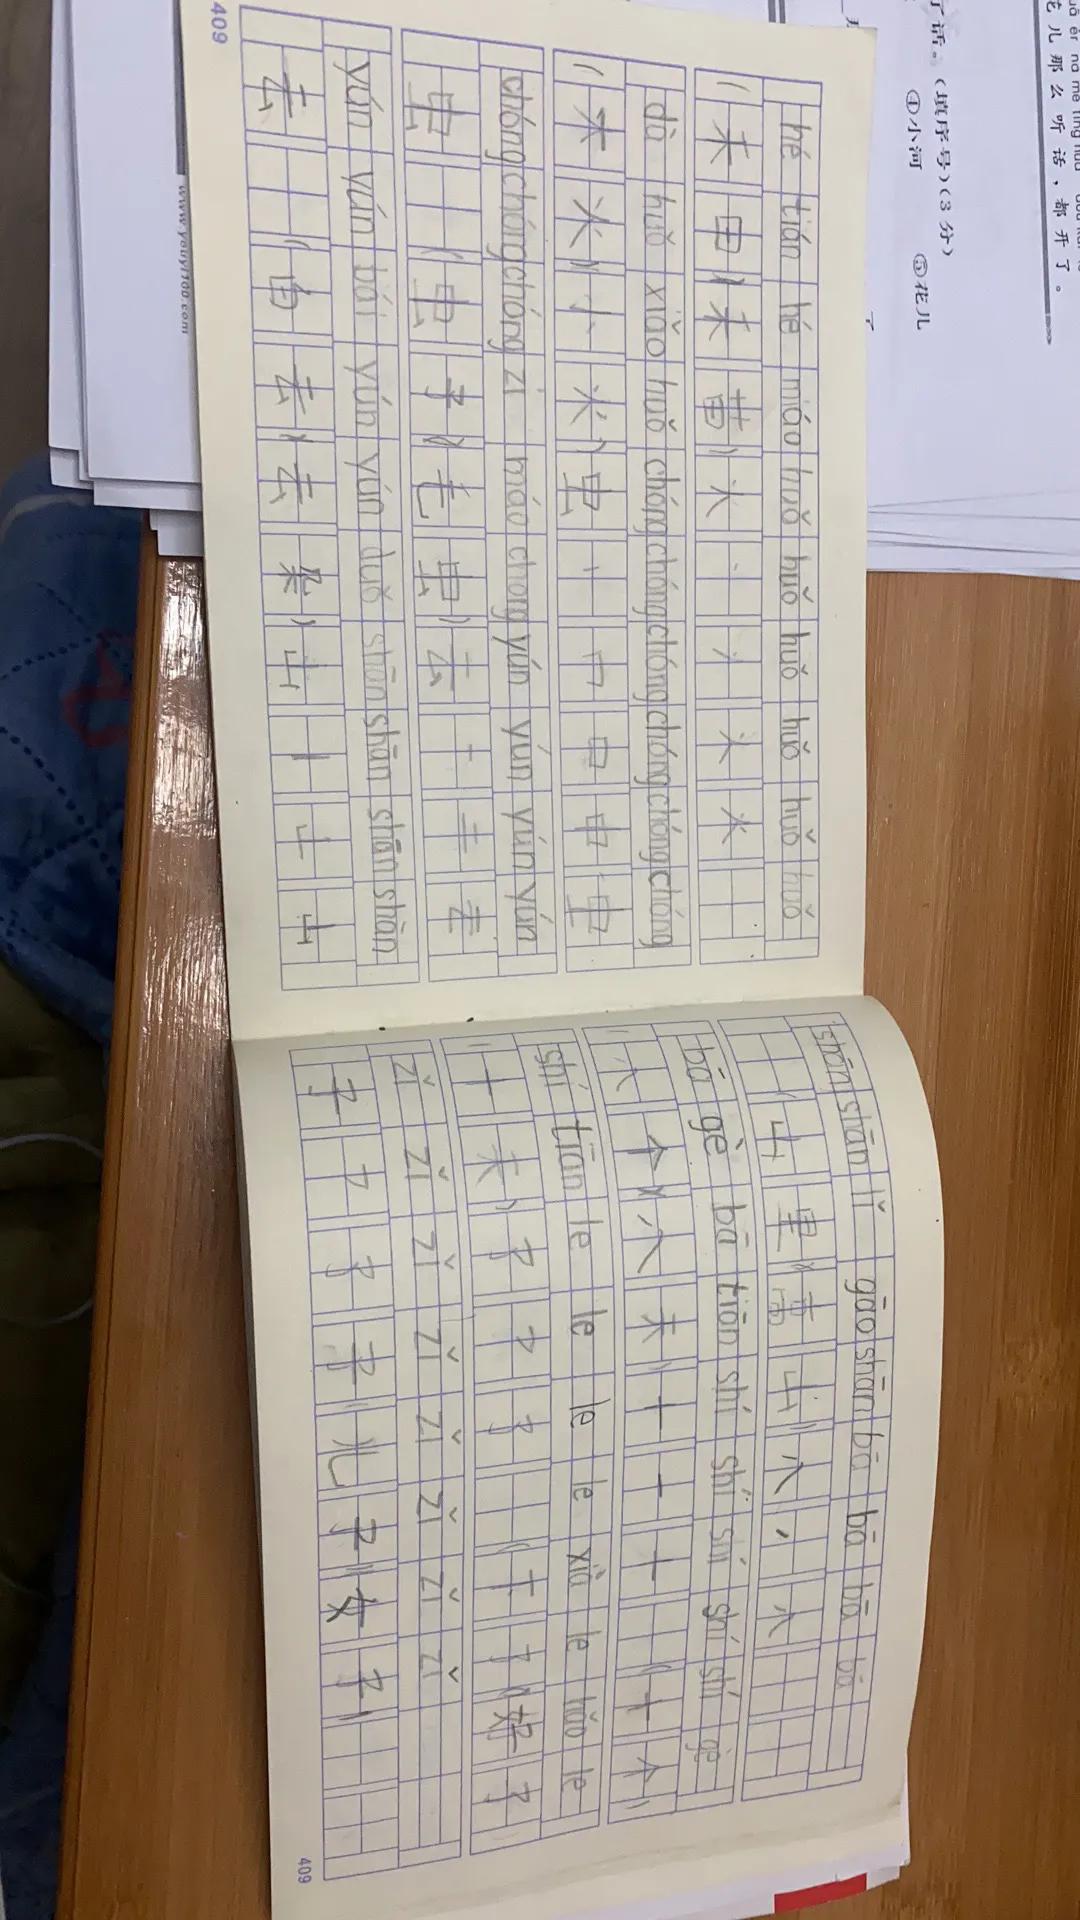 uō ér nà me tīng huà dōu kāi le
花儿那么听话，都开了。
了话。(填序号)(3分)
④小河 ⑤花儿
hé tián hé miáo huǒ huǒ huǒ huǒ huǒ huǒ
(禾田)(禾苗)火丶火火
dà huǒ xiǎo huǒ chóng chóng chóng chóng chóng chóng
(大火)(小火)虫丨口中虫
chóng chóng chóng zi máo chong yún yún yún yún
虫 (虫子)(毛虫)云一二云
yún yún bái yún yún duǒ shān shān shān shān
云 (白云)(云朵)山丨山山
409
www.youyi100.com
shān shān lǐ gāo shān bā bā bā bā
(山里)(高山)八丿八
bā gè bā tiān shí shí shí shí shí gè
(八个)(八天)十一十 (十个)
shí tiān le le le le xià le hǎo le
(十天)了了了 (下了)(好了)
zǐ zǐ zǐ zǐ zǐ zǐ zǐ zǐ
子了子子(儿子)(女子)
409